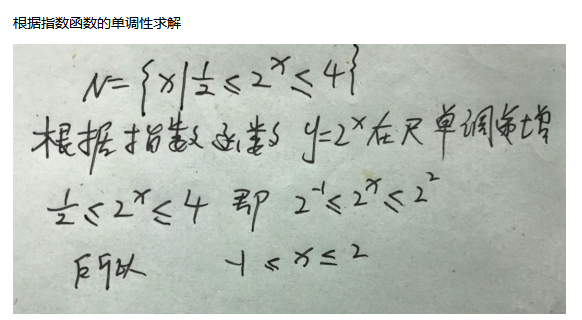 根据指数函数的单调性求解
N={x|1/2≤2^x≤4}
根据指数函数 y=2^x在R单调递增
1/2≤2^x≤4 即 2^-1≤2^x≤2^2
所以 -1≤x≤2